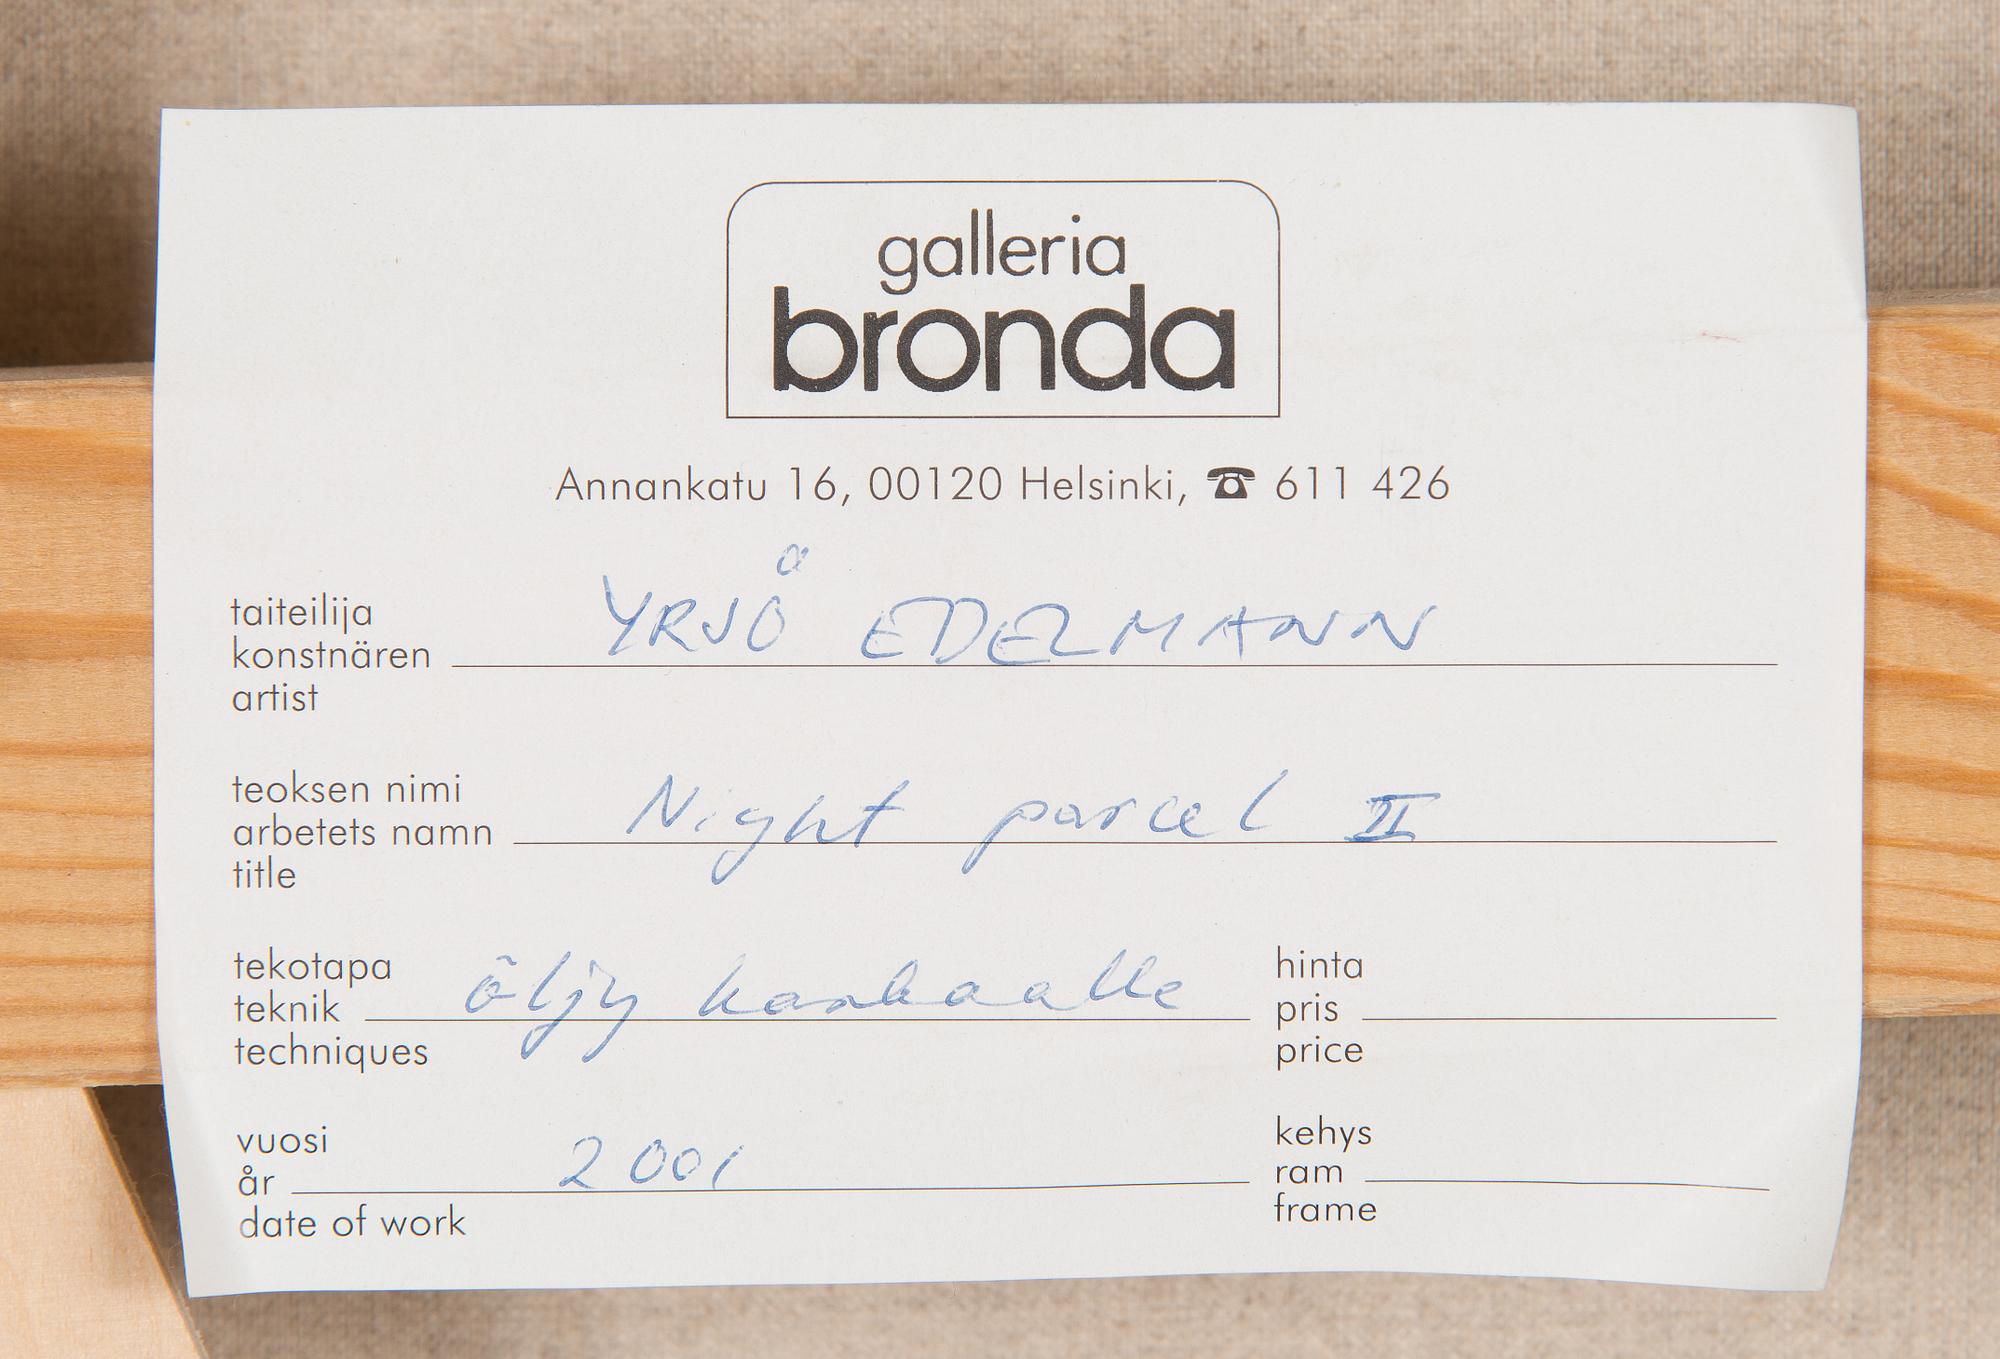 galleria
bronda
Annankatu 16, 00120 Helsinki, ☎ 611 426
taiteilija
konstnären YRJÖ EDELMANN
artist
teoksen nimi
arbetets namn Night parcel II
title
tekotapa
teknik öljy kankaalle
techniques
hinta
pris
price
vuosi
år 2001
date of work
kehys
ram
frame